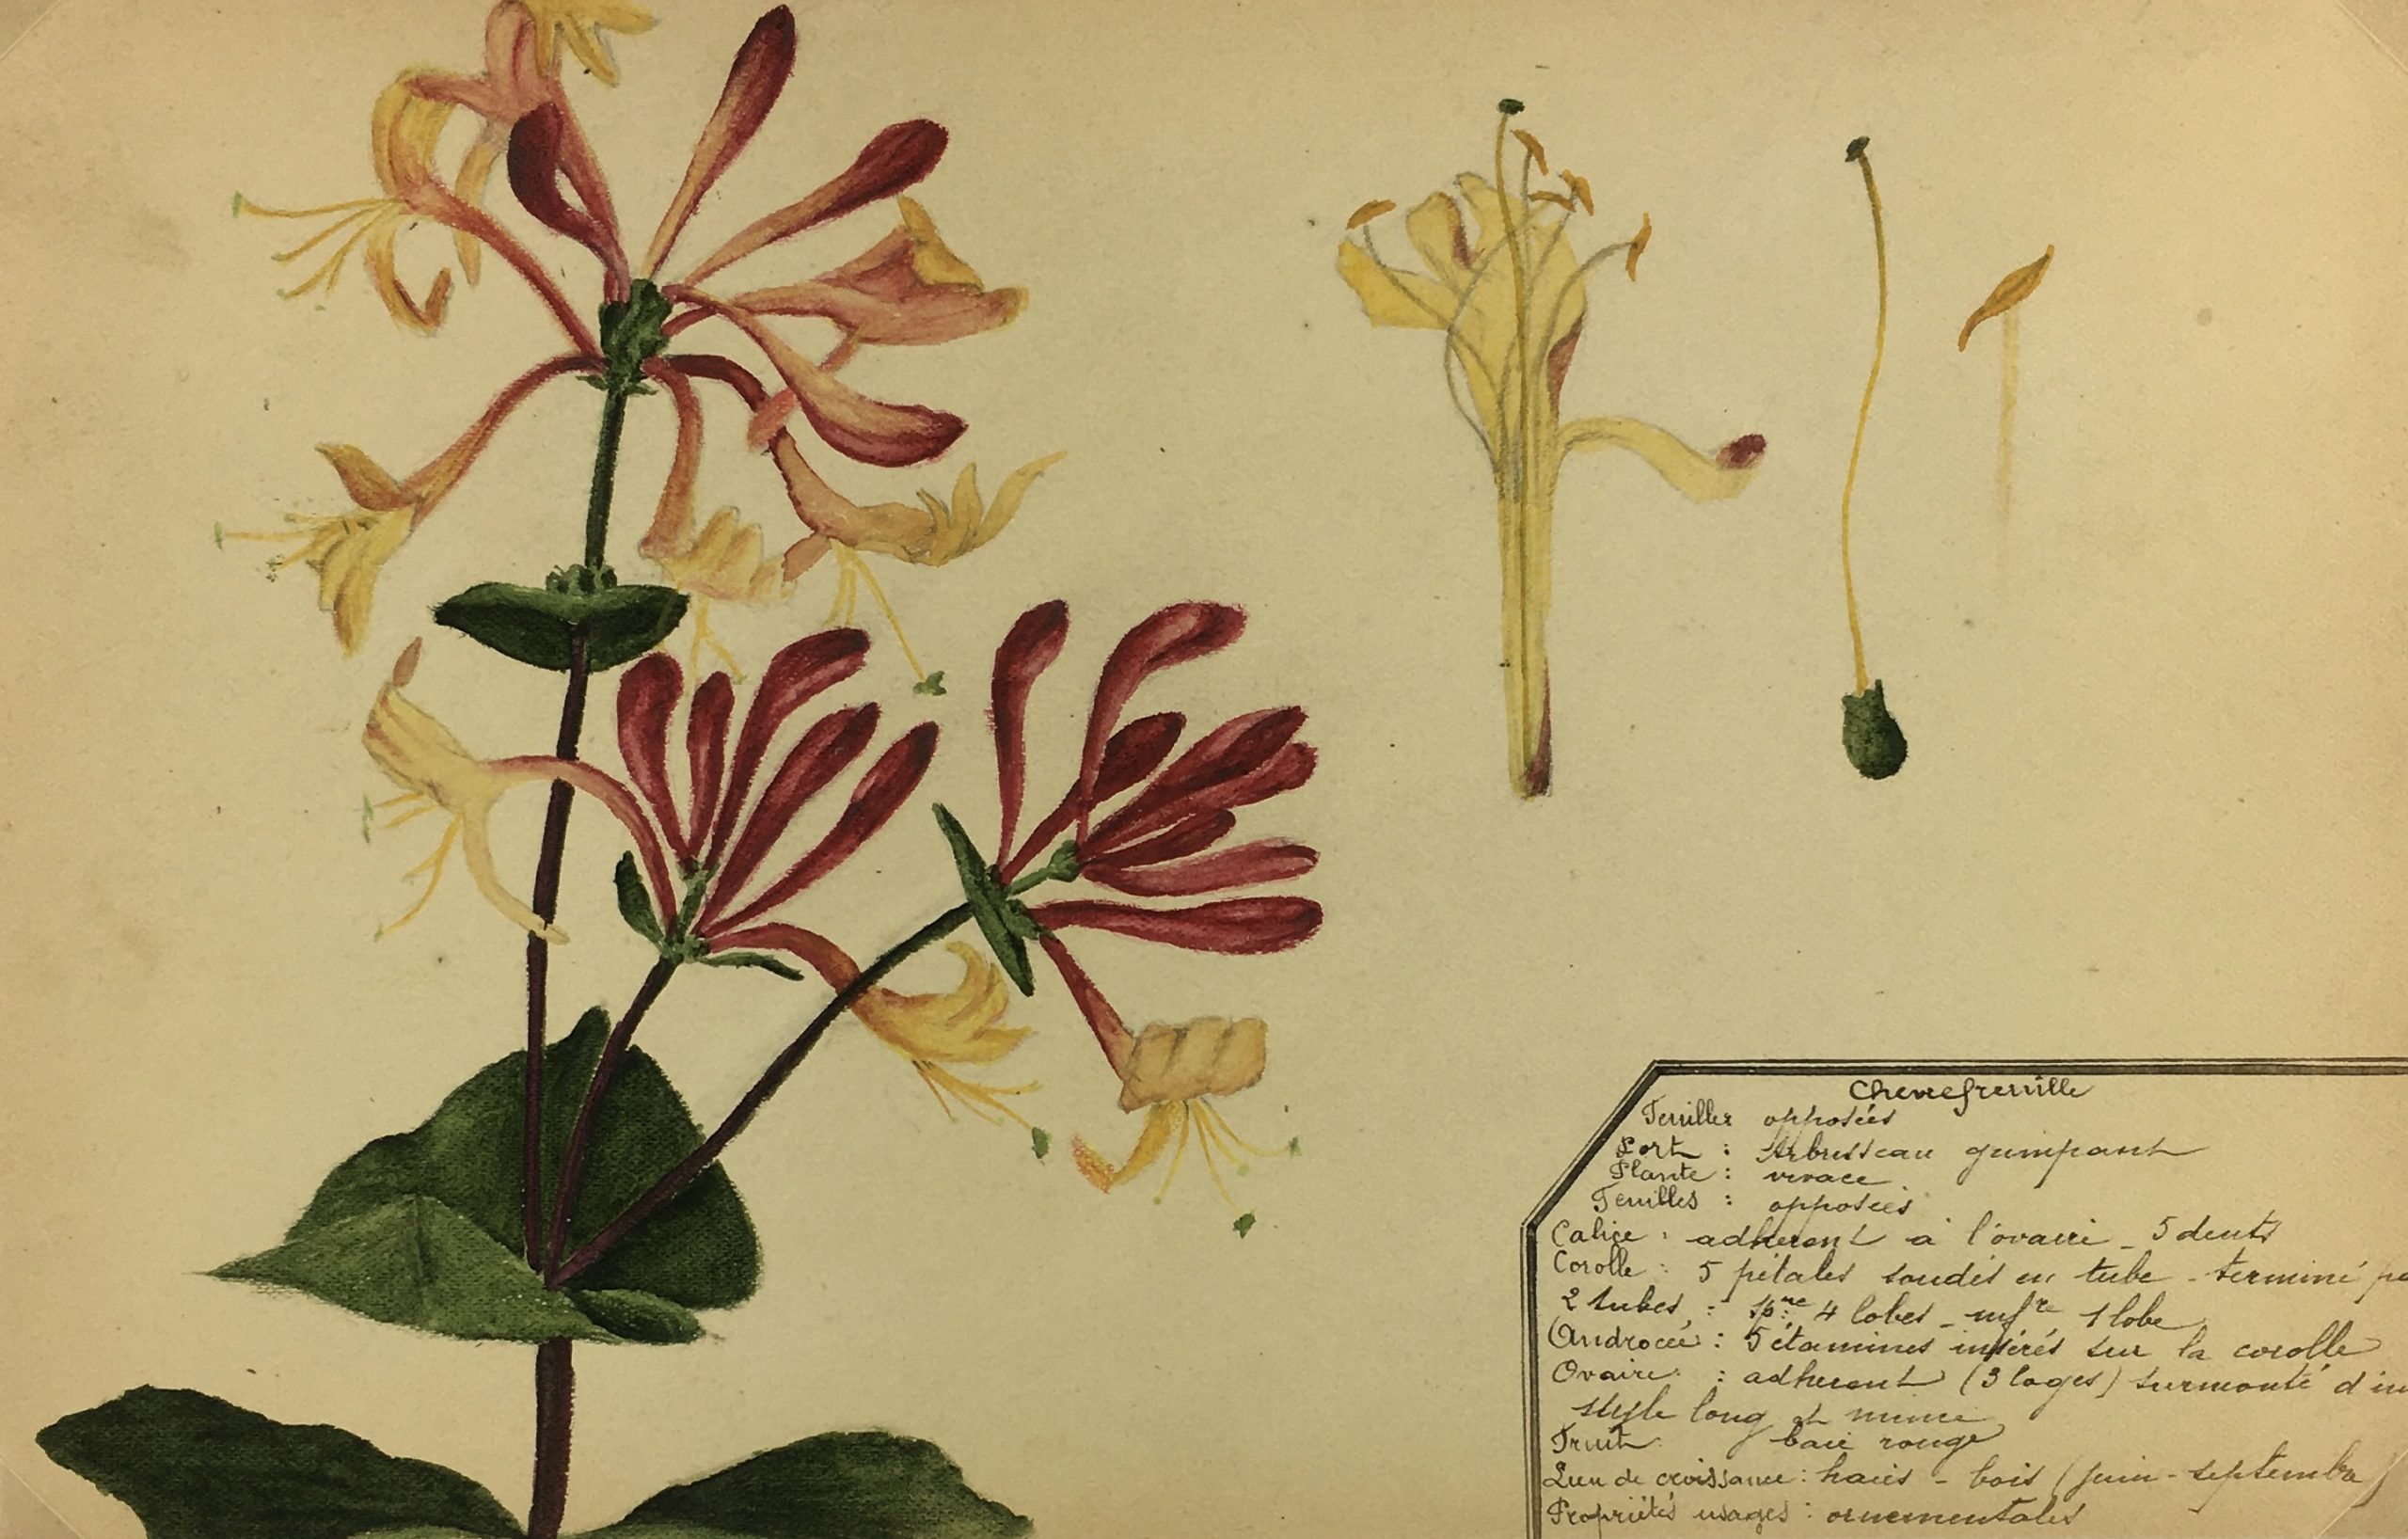 Chevrefeuille
Feuilles opposées
Port : Arbrisseau grimpant
Plante : vivace
Feuilles : opposées
Calice : adhérent à l'ovaire - 5 dents
Corolle : 5 pétales soudés en tube - terminé
2 tubes : 4 lobes - infre 1 lobe
Androcée : 5 étamines insérés sur la corolle
Ovaire : adhérent (3 loges) surmonté d'un
style long et mince
Fruit baie rouge
Lieu de croissance : haies - bois (juin - septembre)
Propriétés usages : ornementales